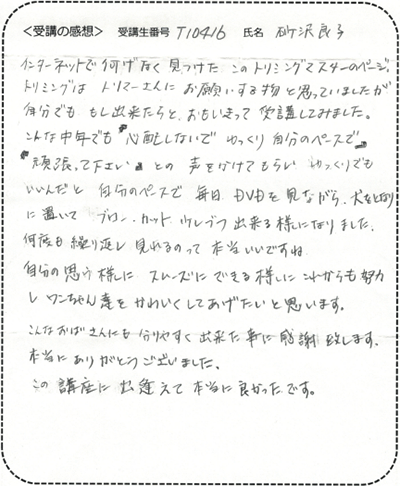 <受講の感想> 受講生番号 T10416 氏名 砂沢良子
インターネットで何げなく見つけた このトリミングマスターのページ。
トリミングは トリマーさんに お願いする物と思っていましたが
自分でも もし出来たらと、おもいきって 受講してみました。
こんな中年でも『心配しないで ゆっくり自分のペースで』
『頑張って下さい』との 声をかけてもらい ゆっくりでも
いいんだと 自分のペースで 毎日 DVDを見ながら、犬をとなり
に置いて ブロー、カット 少しづつ 出来る様になりました。
何度も繰り返し 見れるのって 本当いいですね
自分の思う様に スムーズに できる様に これからも努力
し ワンちゃん達を かわいくしてあげたいと思います。
こんなおばさんにも 分りやすく 出来た事に 感謝致します。
本当に ありがとうございました。
この講座に 出逢えて 本当に良かったです。